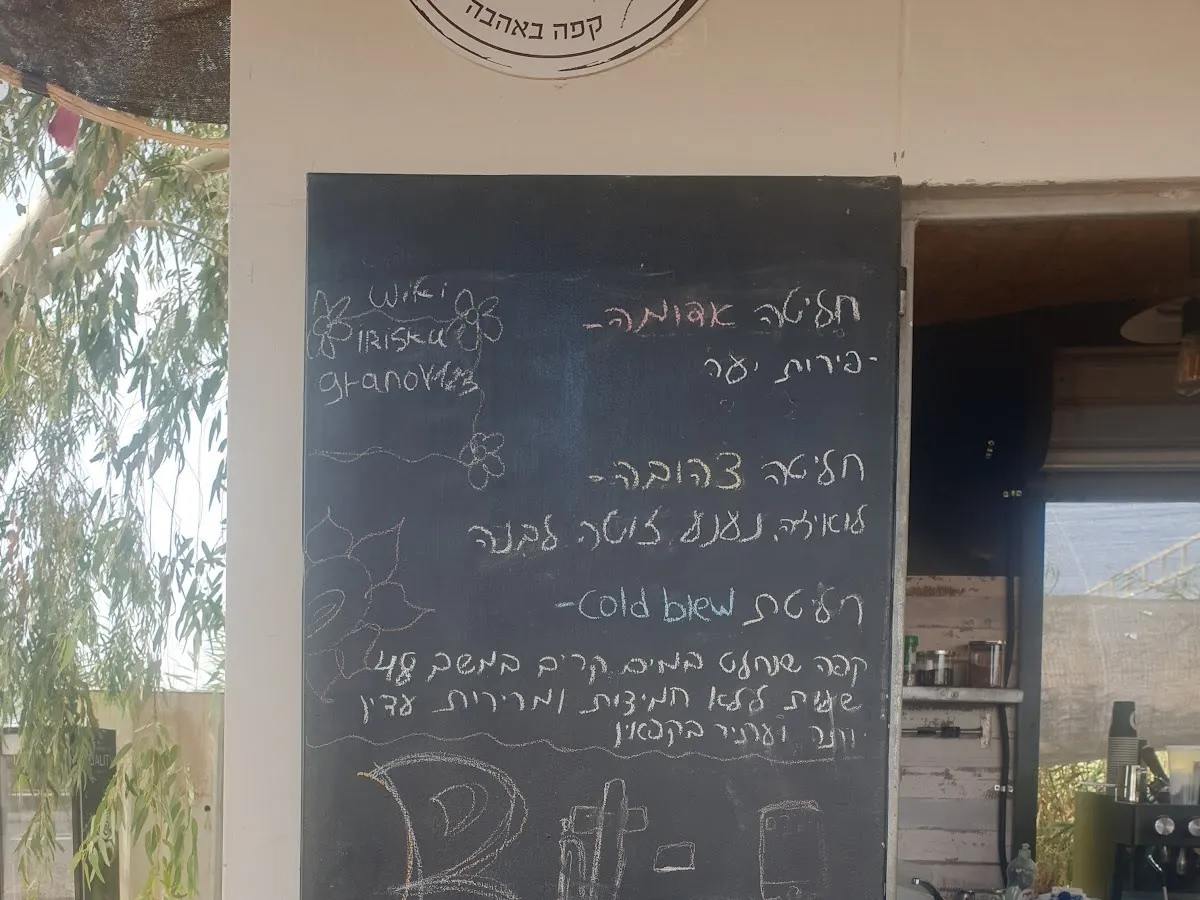 קפה באהבה
חליטה אדומה-
-פירות יער
חליטה צהובה-
לואיזה נענע זוטה לבנה
חליטת cold blew-
קפה שנחלט במים קרים במשך 48
שעות ללא חמיצות ומרירות עדין
יותר ועתיר בקפאין
wiki
IRISKA